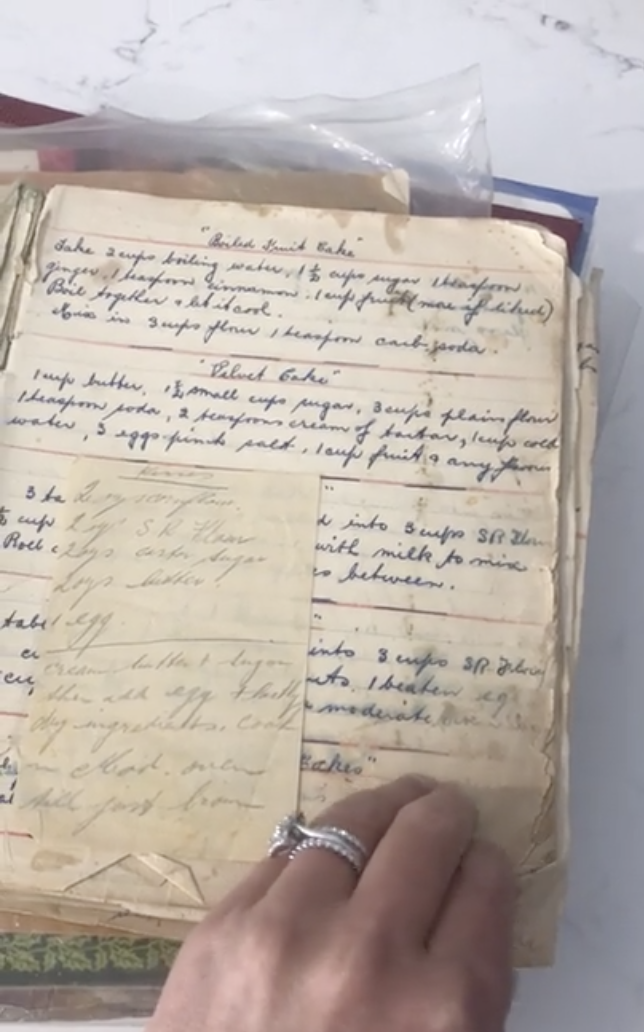 "Boiled Fruit Cake"
Take 2 cups boiling water, 1½ cups sugar 1 teaspoon
ginger, 1 teaspoon cinnamon, 1 cup fruit (more if liked)
Boil together & let it cool.
Mix in 3 cups flour 1 teaspoon carb soda.
"Velvet Cake"
1 cup butter, 1½ small cups sugar, 3 cups plain flour
1 teaspoon soda, 2 teaspoons cream of tartar, 1 cup cold
water, 3 eggs pinch salt, 1 cup fruit & any flavour
2 ozs cornflour.
2 ozs S R Flour
2 ozs castor sugar
2 ozs butter.
1 egg.
cream butter & sugar
then add egg & lastly
dry ingredients. Cook
in Mod. oven
till just brown
3 ta
cup
Roll
into 3 cups SR Flour
with milk to mix
between.
tabl
cu
into 3 cups SR Flour
1 beaten eg
moderate
Cakes"